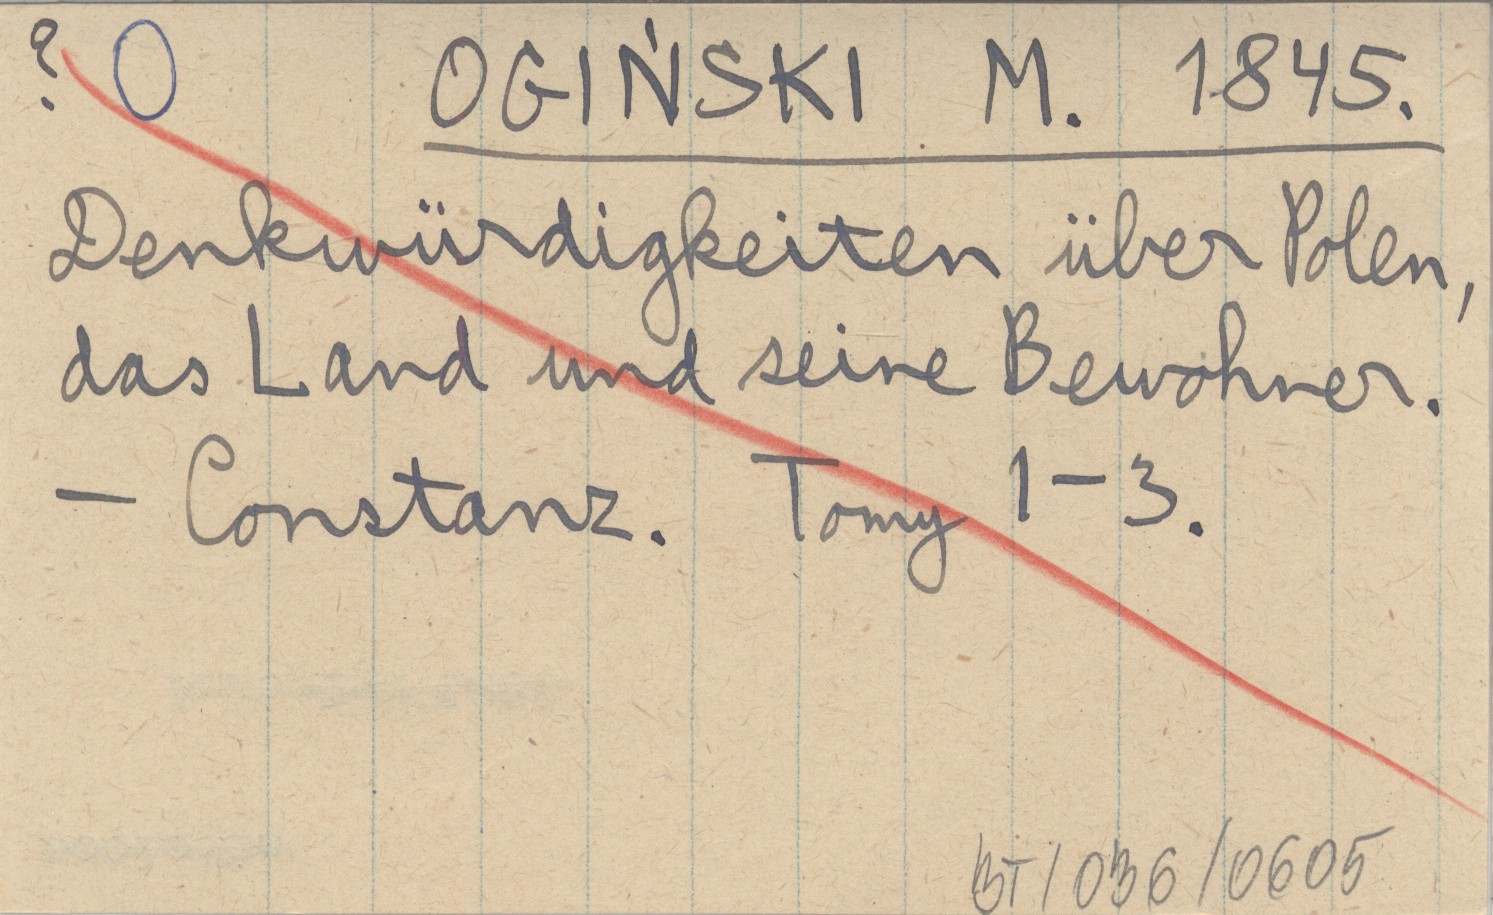 ? O OGIŃSKI M. 1845.
Denkwürdigkeiten über Polen,
das Land und seine Bewohner.
— Constanz. Tomy 1-3.
BT/036/0605